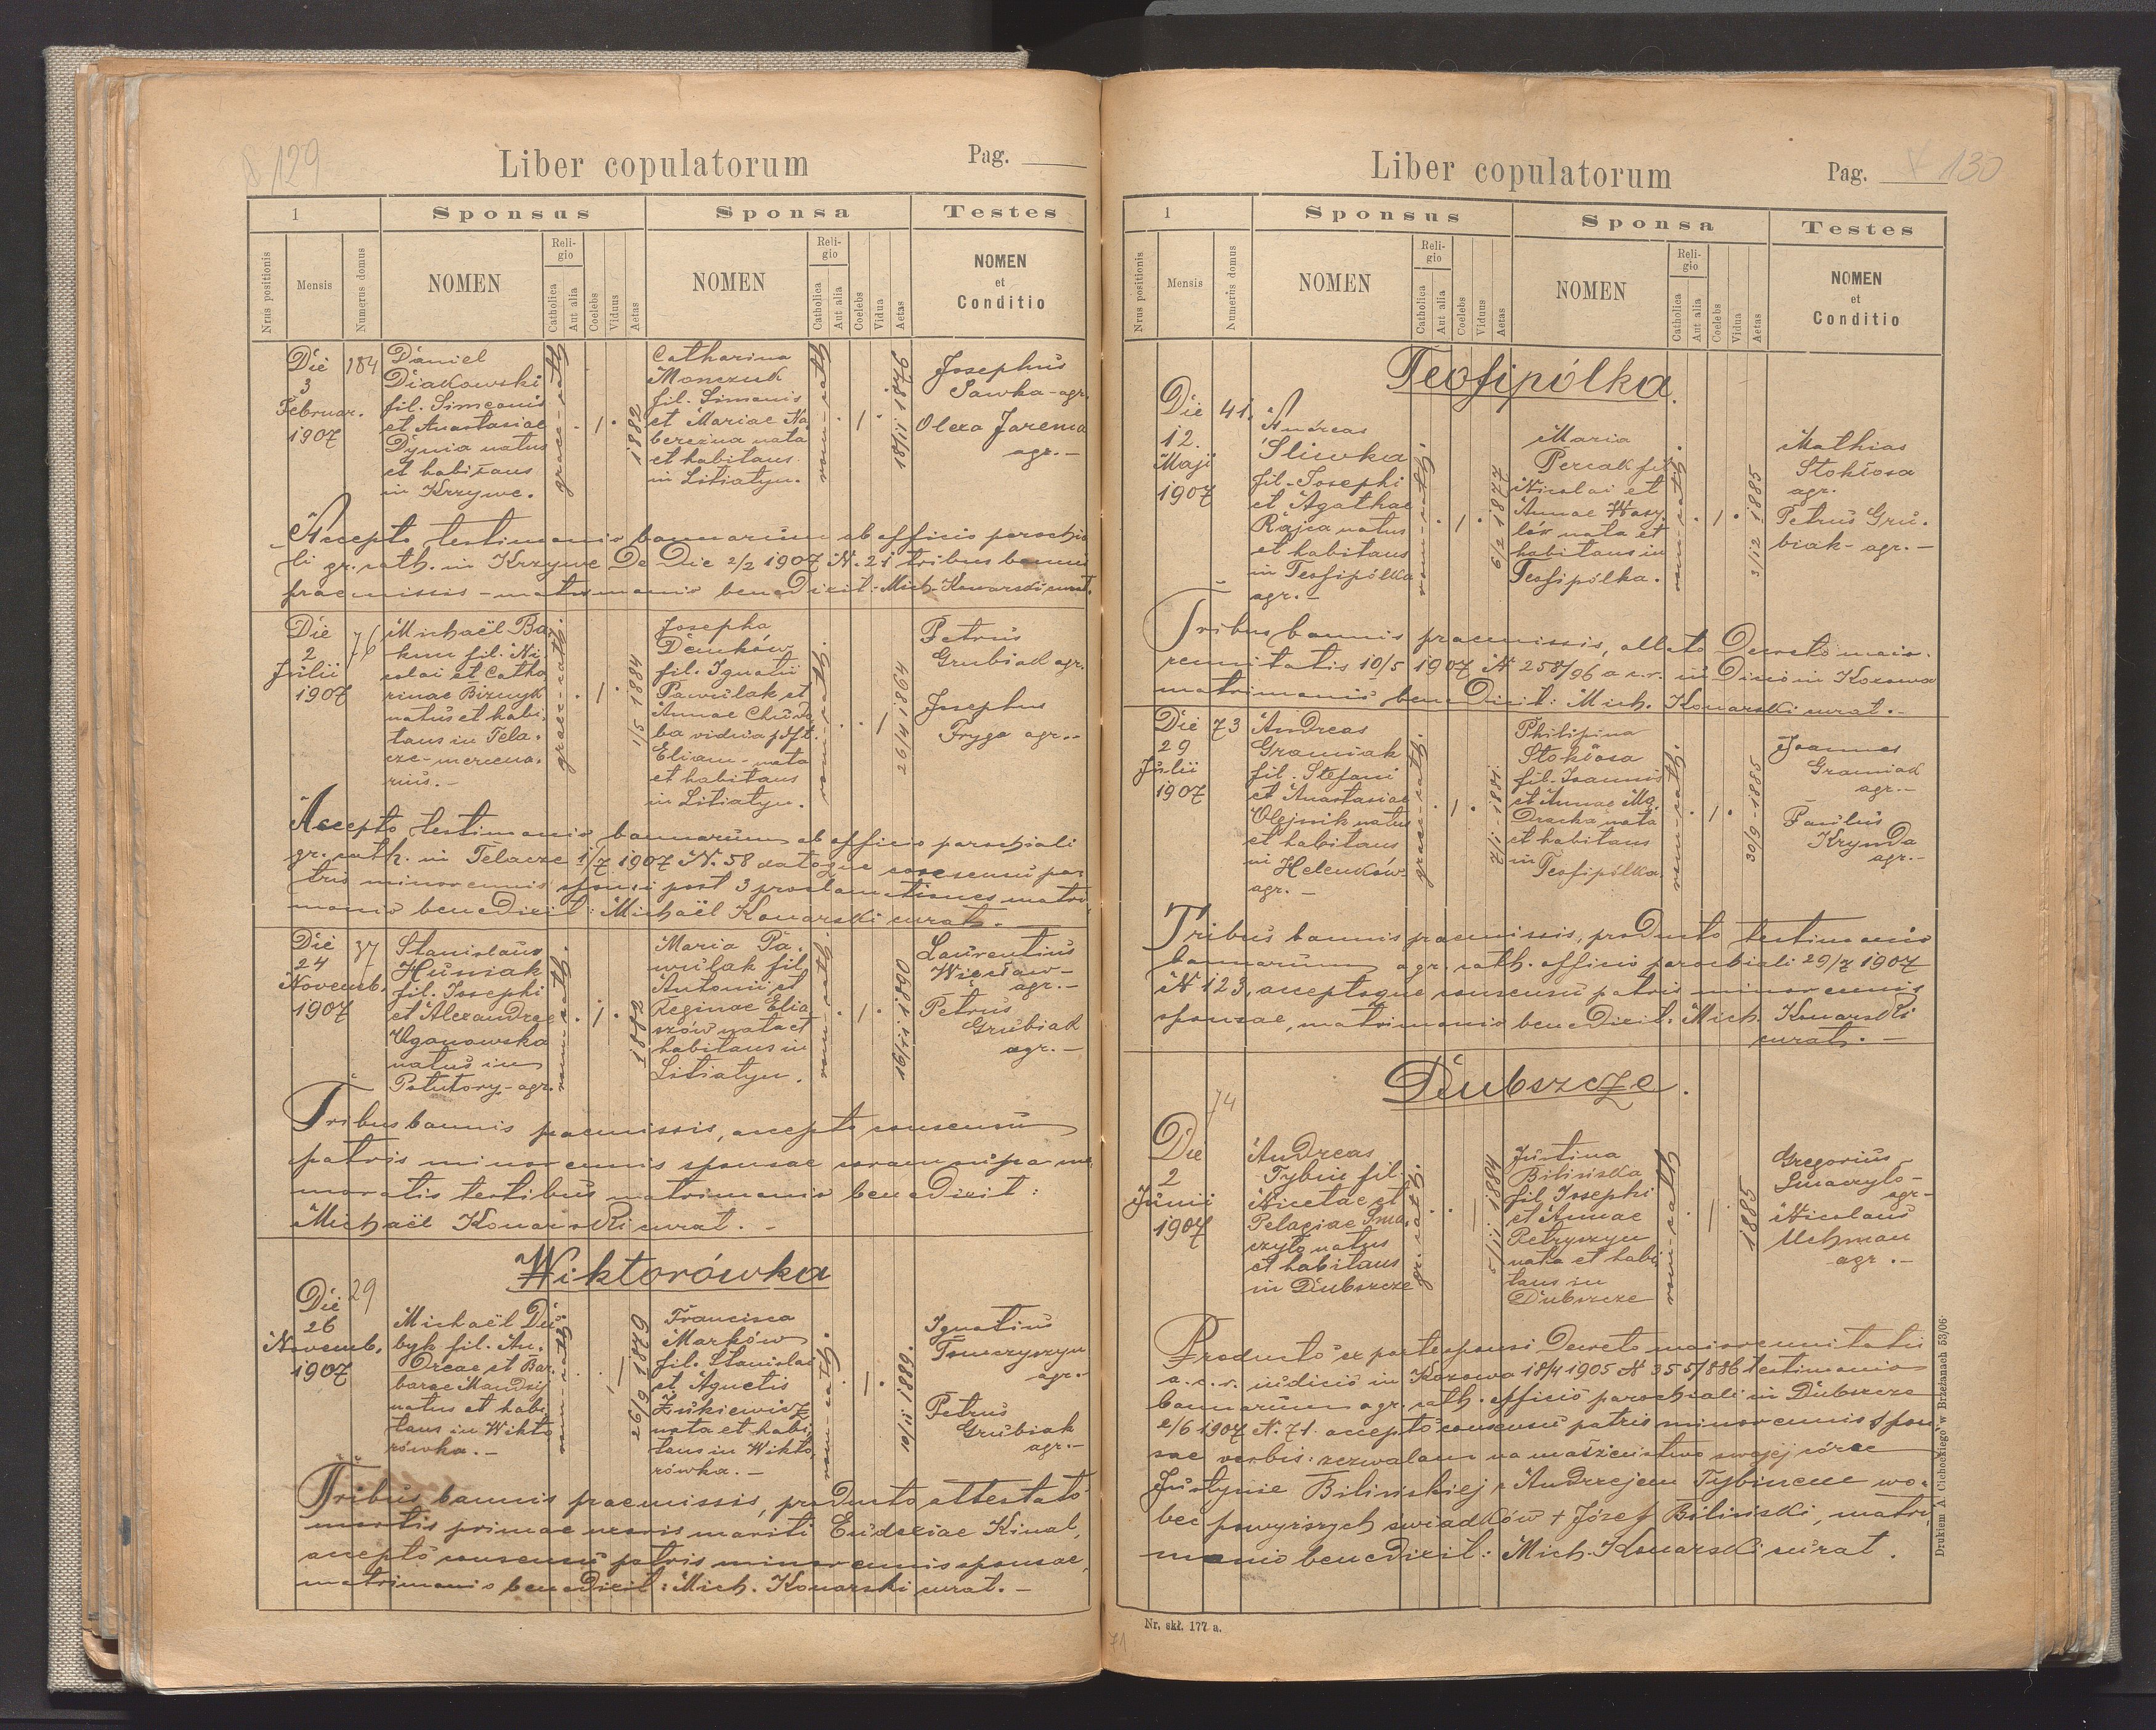 129
Liber copulatorum
Pag.
1
Sponsus
Sponsa
Testes
Nrus positionis
Mensis
Numerus domus
NOMEN
Religio
Catholica
Aut alia
Coelebs
Viduus
Aetas
NOMEN
Religio
Catholica
Aut alia
Coelebs
Vidua
Aetas
NOMEN
et
Conditio
Die
3
Februar.
1907
184
Daniel
Diakowski
fil. Simeonis
et Anastasiae
Dynia natus
et habitans
in Krzywe.
graec-cath
1882
Catharina
Monczuk
fil. Simonis
et Mariae Na
berezna nata
et habitans
in Litiatyn.
rom-cath
18/11 1876
Josephus
Sawka-agr.
Olexa Jarema
agr.-
Accepto testimonio bannorum ab officio parochia
li gr. cath. in Krzywe De Die 2/2 1907 N. 21 tribus bannis
praemissis - matrimonio benedixit: Mich. Konarski curat.
Die
2
Julii
1907
76
Michaël Ba
kun fil. Ni
colai et Catha
rinae Biznyk
natus et habi
tans in Tela.
cze-mercena.
rius.-
graec-cath.
1/5 1884
Josepha
Demków
fil. Ignatii
Pawulak et
Annae Chudo
ba vidua post.
Eliam-nata
et habitans
in Litiatyn.
rom-cath.
26/4 1864
Petrus
Grubiak agr.
Josephus
Fryga agr.-
Accepto testimonio bannorum ab officio parochiali
gr. cath. in Telacze 1/7 1907 N. 58 datoque consensu pa
tris minorennis sponsi post 3 proclamationes matri
monio benedixit: Michaël Konarski curat.
Die
24
Novemb.
1907
37
Stanislaus
Husiak
fil. Josephi
et Alexandrae
Uganowska
natus in
Potutory-agr.
rom-cath.
1882
Maria Pa.
wulak fil.
Antonii et
Reginae Elia
szów nata et
habitans in
Litiatyn.
rom-cath.
16/11. 1890
Laurentius
Więcław-
agr.-
Petrus
Grubiak
agr.-
Tribus bannis praemissis, accepto consensu
patris minorennis sponsae coram supra me
moratis testibus matrimonio benedixit:
Michaël Konarski curat.-
Wiktorówka
Die
26
Novemb.
1907
29
Michaël Du
byk fil. An.
dreae et Bar.
barae Mandzij
natus et habi
tans in Wikto
rówka.-
rom-cath.
26/9 1879
Francisca
Marków
fil. Stanislai
et Agnetis
Żukiewicz
nata et habi.
tans in Wikto,
rówka.-
rom-cath.
10/11. 1889.
Ignatius
Tomczyszyn
agr.
Petrus
Grubiak
agr.-
Tribus bannis praemissis, producto attestato
mortis primae uxoris mariti Eudoxiae Kinal,
accepto consensu patris minorennis sponsae,
matrimonio benedixit: Mich. Konarski curat.-
Liber copulatorum
Pag.
130
1
Sponsus
Sponsa
Testes
Nrus positionis
Mensis
Numerus domus
NOMEN
Religio
Catholica
Aut alia
Coelebs
Viduus
Aetas
NOMEN
Religio
Catholica
Aut alia
Coelebs
Vidua
Aetas
NOMEN
et
Conditio
Teofipólka.
Die
12.
Maji
1907
41.
Andreas
Śliwka
fil.-Josephi
et Agathae
Rajca natus
et habitans
in Teofipólka
agr.-
rom-cath.
6/2 1877
Maria
Percak fil.
Nicolai et
Annae Wasy
lów nata et
habitans in
Teofipólka.
rom-cath.
3/12 1885
Mathias
Stokłosa
agr.
Petrus Gru.
biak-agr.-
Tribus bannis praemissis, allato Decreto maio.
rennitatis 10/5 1907 N 258/96 a c.r. iu Dicio in Kozowa
matrimonio benedixit: Mich. Konarski curat.-
Die
29
Julii
1907
73
Andreas
Gramiak
fil. Stefani
et Anastasiae
Olejnik natus
et habitans
in Helenków
agr.-
graec-cath.
7/1. 1881.
Philipina
Stokłosa
fil. Joannis
et Annae Ma
Dracka nata
et habitans
in
Teofipólka.
rom-cath.
30/9-1885
Joannes
Gramiak
agr.-
Basilius
Krynda
agr.-
Tribus bannis praemissis, producto testimonio
bannorum a gr. cath. officio parochiali 29/7 1907
N 123, acceptoque consensu patris minorennis
sponsae, matrimonio benedixit: Mich. Konarski
curat.-
Dubszcze.
74
Die
2
Junii
1907
Andreas
Tybin fil.
Nicetae et
Pelagiae Sma.
czyło natus
et habitans
in Dubszcze
gr. cath.
5/11. 1884
Justina
Bilińska
fil. Josephi
et Annae
Petryszyn
nata et habi.
tans in
Dubszcze
rom-cath
1885
Gregorius
Smaczyło-
agr-
Nicolaus
Uchman
agr.-
Producto ex parte sponsi Decreto maiorennitatis
a.c.r. iudicio in Kozowa 18/4 1905 N 355/886 testimonio
bannorum a gr. cath. officio parochiali in Dubszcze
2/6 1907 N. 71. accepto consensu patris minorennis spon
sae verbis: zezwalam na małżeństwo swojej córce
Justynie Bilińskiej z Andrzejem Tybinem wo.
bec powyższych świadków + Józef Biliński, matri
monio benedixit: Mich. Konarski curat.
Nr. skł. 177 a.
Drukiem A. Cichockiego w Brzeżanach 53/06.
71